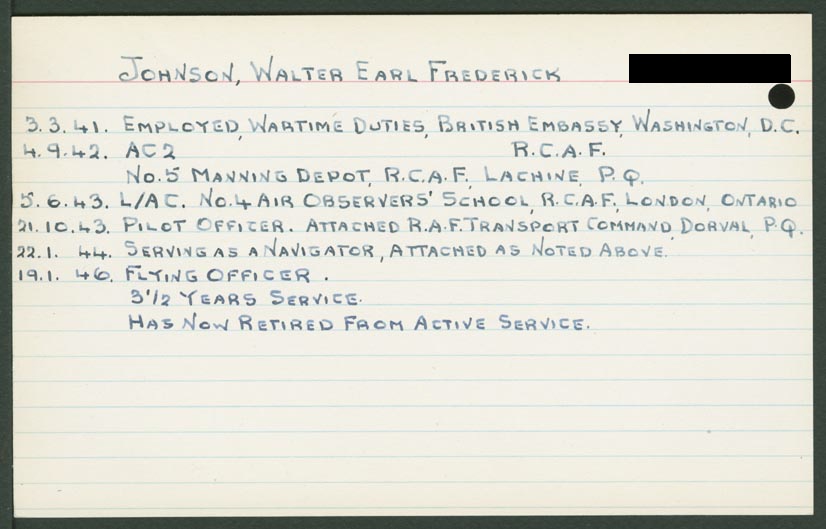 JOHNSON, WALTER EARL FREDERICK
3.3.41. EMPLOYED, WARTIME DUTIES, BRITISH EMBASSY, WASHINGTON, D.C.
4.9.42. AC2 R.C.A.F.
NO.5 MANNING DEPOT, R.C.A.F. LACHINE, P.Q.
5.6.43. L/AC. NO.4 AIR OBSERVERS' SCHOOL, R.C.A.F. LONDON, ONTARIO
21.10.43. PILOT OFFICER. ATTACHED R.A.F. TRANSPORT COMMAND, DORVAL, P.Q.
22.1.44. SERVING AS A NAVIGATOR, ATTACHED AS NOTED ABOVE.
19.1.46. FLYING OFFICER.
3 1/2 YEARS SERVICE.
HAS NOW RETIRED FROM ACTIVE SERVICE.